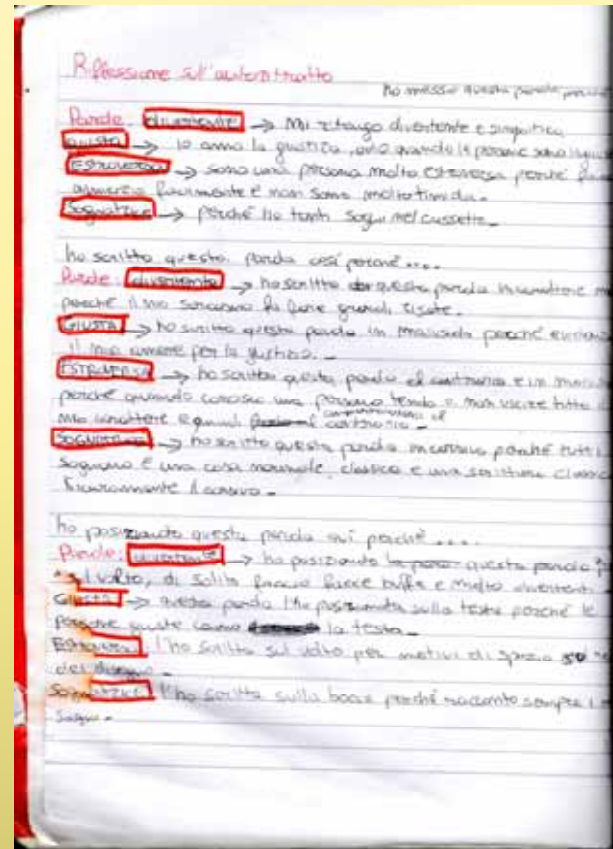 Riflessione sull'autoritratto
ho messo questa parola perché
Parole: divertente → Mi ritengo divertente e simpatica
giusta → io amo la giustizia, odio quando le persone sono
Estroversa → sono una persona molto estroversa perché
facilmente e non sono molto timida.
Sognatrice → perché ho tanti sogni nel cassetto.
ho scritto questa parola così perché....
Parole: divertente → ho scritto questa parola in
perché il mio fa fare grandi risate.
GIUSTA → ho scritto questa parola in perché
il mio amore per la giustizia.
ESTROVERSA → ho scritto questa parola al contrario e in
perché quando conosco una persona tendo a non uscire tutto il
mio carattere e quindi al contrario.
SOGNATRICE → ho scritto questa parola in corsivo perché tutti
sognano è una cosa normale, classica e una scrittura
il corsivo.
ho posizionato questa parola qui perché....
Parole: divertente → ho posizionato questa parola
sul volto, di solito faccio facce buffe e molto divertenti
Giusta → questa parola l'ho posizionata sulla testa perché le
persone giuste la testa.
Estroversa l'ho scritta sul volto per motivi di spazio
del disegno.
Sognatrice l'ho scritta sulla bocca perché racconto sempre i
sogni.